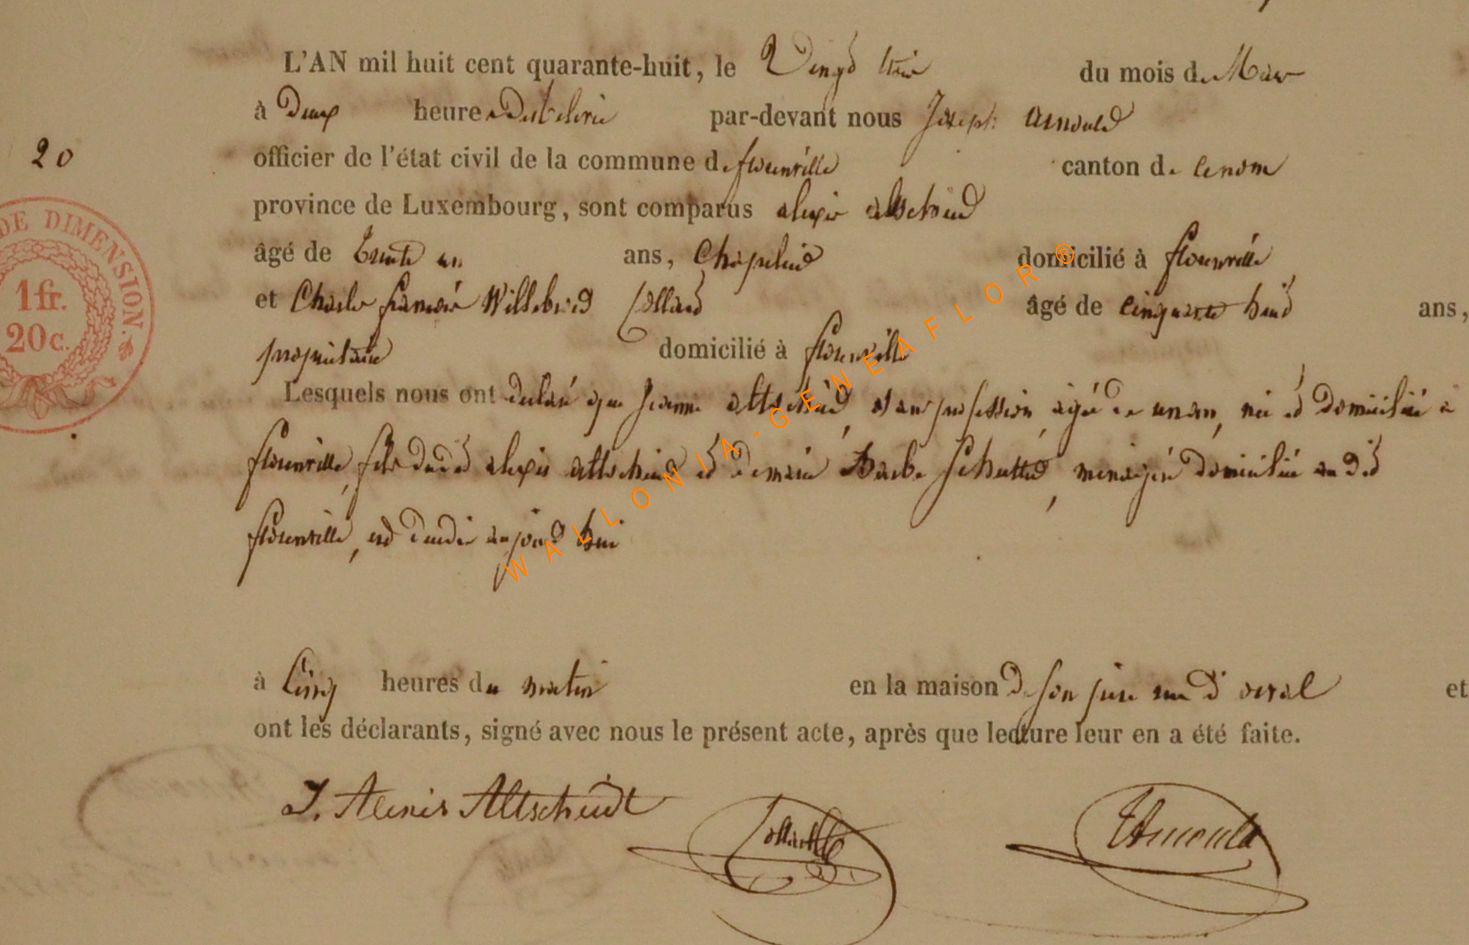 L'AN mil huit cent quarante-huit, le Vingt trois du mois de Mars
à Deux heures de relevée par-devant nous Joseph Arnould
20
officier de l'état civil de la commune de florenville canton de
province de Luxembourg, sont comparus alexis altscheid
âgé de trente un ans, Chapelier domicilié à florenville
et Charles françois Willebrord Collard âgé de cinquante huit ans,
propriétaire domicilié à florenville
Lesquels nous ont déclaré que altscheid, sans profession, agé de un an, né et domicilié à
florenville, fils dudit alexis altscheid et de marie Barbe, ménagère domiciliée audit
florenville, est décédé aujourd'hui
à Cinq heures du matin en la maison de son père rue d'orval et
ont les déclarants, signé avec nous le présent acte, après que lecture leur en a été faite.
J. Alexis Altscheidt Collard JArnould
DE DIMENSION.
1fr.
20c.
WALLONIA-GENEAFLOR©